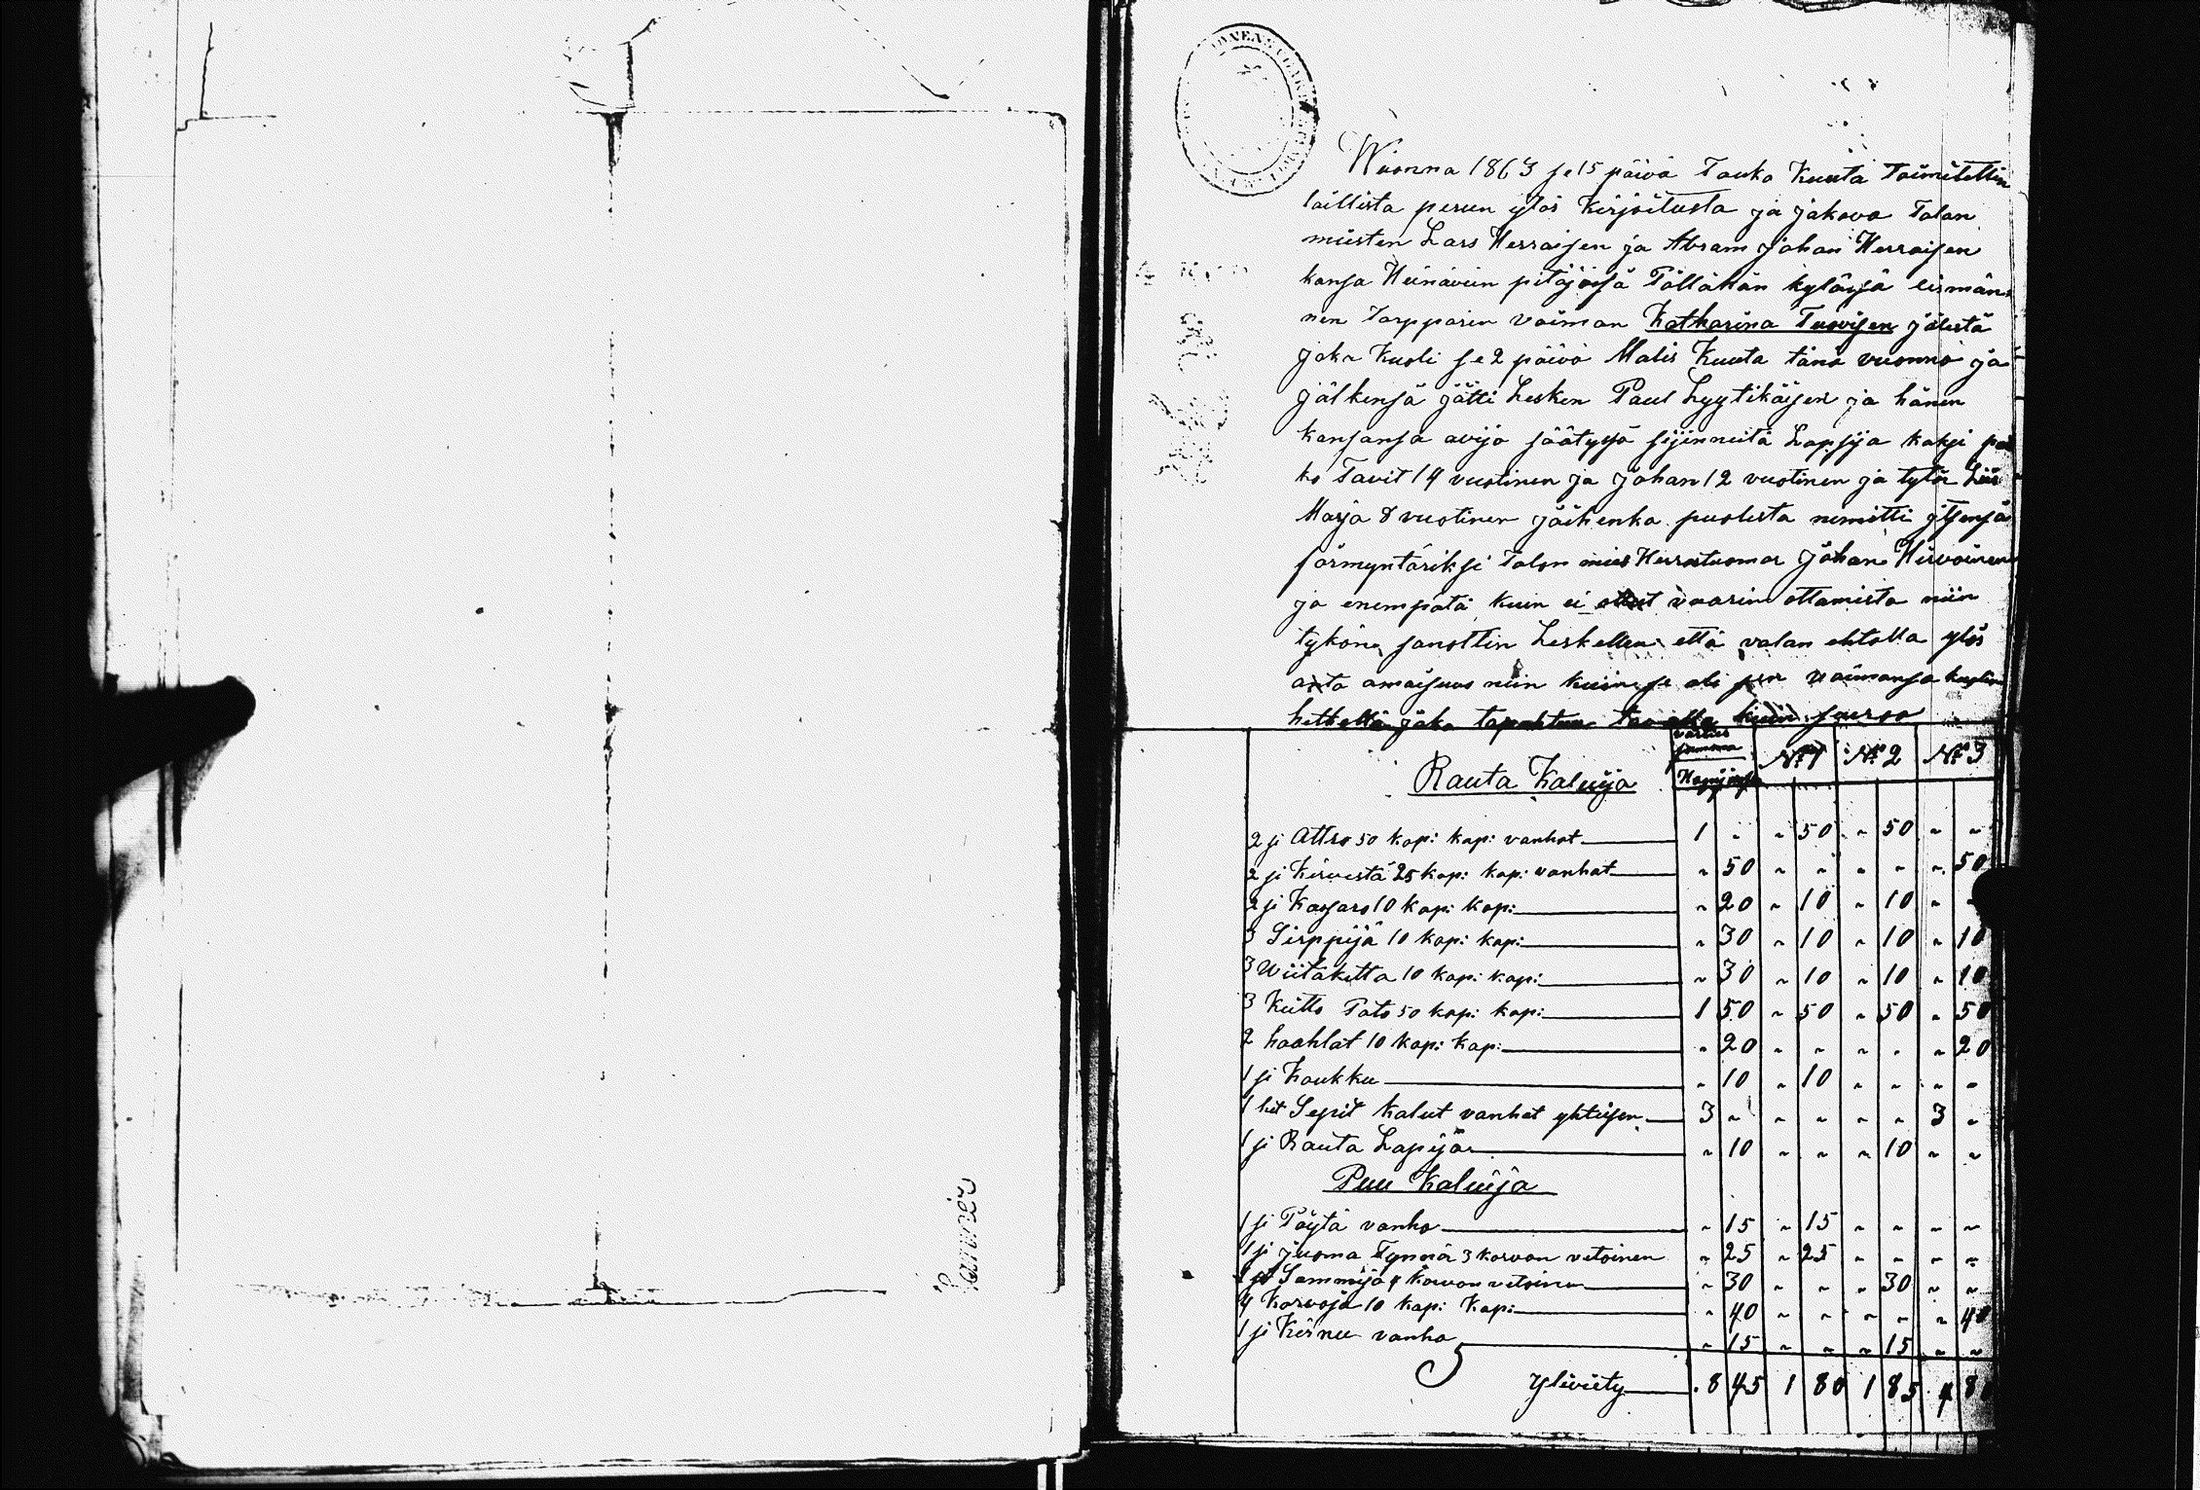 Lammër
Wuonna 1863 se 15 päivä Touko Kuuta Toimitettin
laillista perun ylös Kirjoitusta ja jakova Talon
miesten Lars Herraisen ja Abram Johan Herraisen
kansa Heinävein pitäjäsä Pällähän kyläsä eismän-
nen Torpparin vaiman Katharina Turvisen jälestä
joka Kuoli se 2 päivä Malis Kuuta tänä vuonna ja
jälkensä jätti Lesken Paul Lyytikäisen ja hänen
kansansa avijo säätysä sijinneitä Lapsija kaksi poi
ka Tavit 14 vuotinen ja Johan 12 vuotinen ja tytär Liis
Marja 8 vuotinen joihenka puolesta nimitti ittensä
förmyntäriksi Talon mies Herrastuomar Johan Hirvoinen
ja enempätä kuin ei ollut vaarin ottamista niin
tykönä sanottin Leskellen että valan ehtolla ylös
anta omaisuus niin kuin se oli sen vaimonsa kuolin
hetkellä joka tapahtuu tavalla kuin seuraa
Rauta Kaluija
Hopijassa
No 1 No 2 No 3
2 si Attro 50 kop: kap: vanhat 1 " " 50 " 50 " "
2 si Kirvestä 25 kop: kap: vanhat " 50 " " " " " 50
2 si Kassaro 10 kop: kap: " 20 " 10 " 10 " "
3 Sirppijä 10 kop: kap: " 30 " 10 " 10 " 10
3 Wiitaketta 10 kop: kap: " 30 " 10 " 10 " 10
3 Keitto Pato 50 kop: kap: 1 50 " 50 " 50 " 50
2 haahlat 10 kop: kap: " 20 " " " " " 20
1 si Koukku " 10 " 10 " " " "
1 het Sepit kalut vanhat yhteisen 3 " " " " " 3 "
1 si Rauta Lapijo " 10 " " " 10 " "
Puu Kaluija
1 si Pöytä vanha " 15 " 15 " " " "
1 si Juoma Tynnör 3 korvon vetoinen " 25 " 25 " " " "
Sammijo 4 korvon vetoinen " 30 " " " 30 " "
4 Korvoja 10 kop: kap: " 40 " " " " " 40
1 si Kirnu vanha " 15 " " " 15 " "
Yliviety 8 45 1 80 1 85 4 80